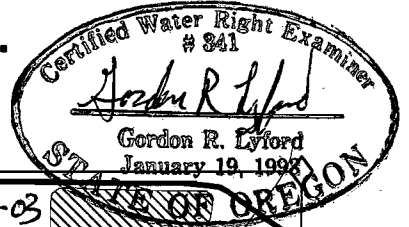 Certified Water Right Examiner
# 341
Gordon R Lyford
Gordon R. Lyford
January 19, 1993
STATE OF OREGON
-03